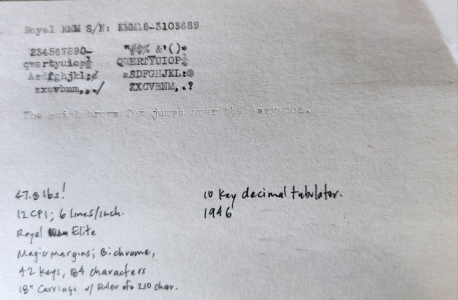 Royal KMM S/N: KMM16-3105889
234567890- "#$% &'()*
qwertyuiop½ QWERTYUIOP¼
Asdfghjkl;¢ aSDFGHJKL:@
zxcvbnm,./ ZXCVBNM,.?
The quick brown fox jumps over the lazy dog.
47.8 lbs!
12 CPI; 6 lines/inch.
Royal Elite
Magic Margins; Bichrome,
42 keys, 84 characters
18" Carriage w/ Ruler of 210 char.
10 key decimal tabulator.
1946